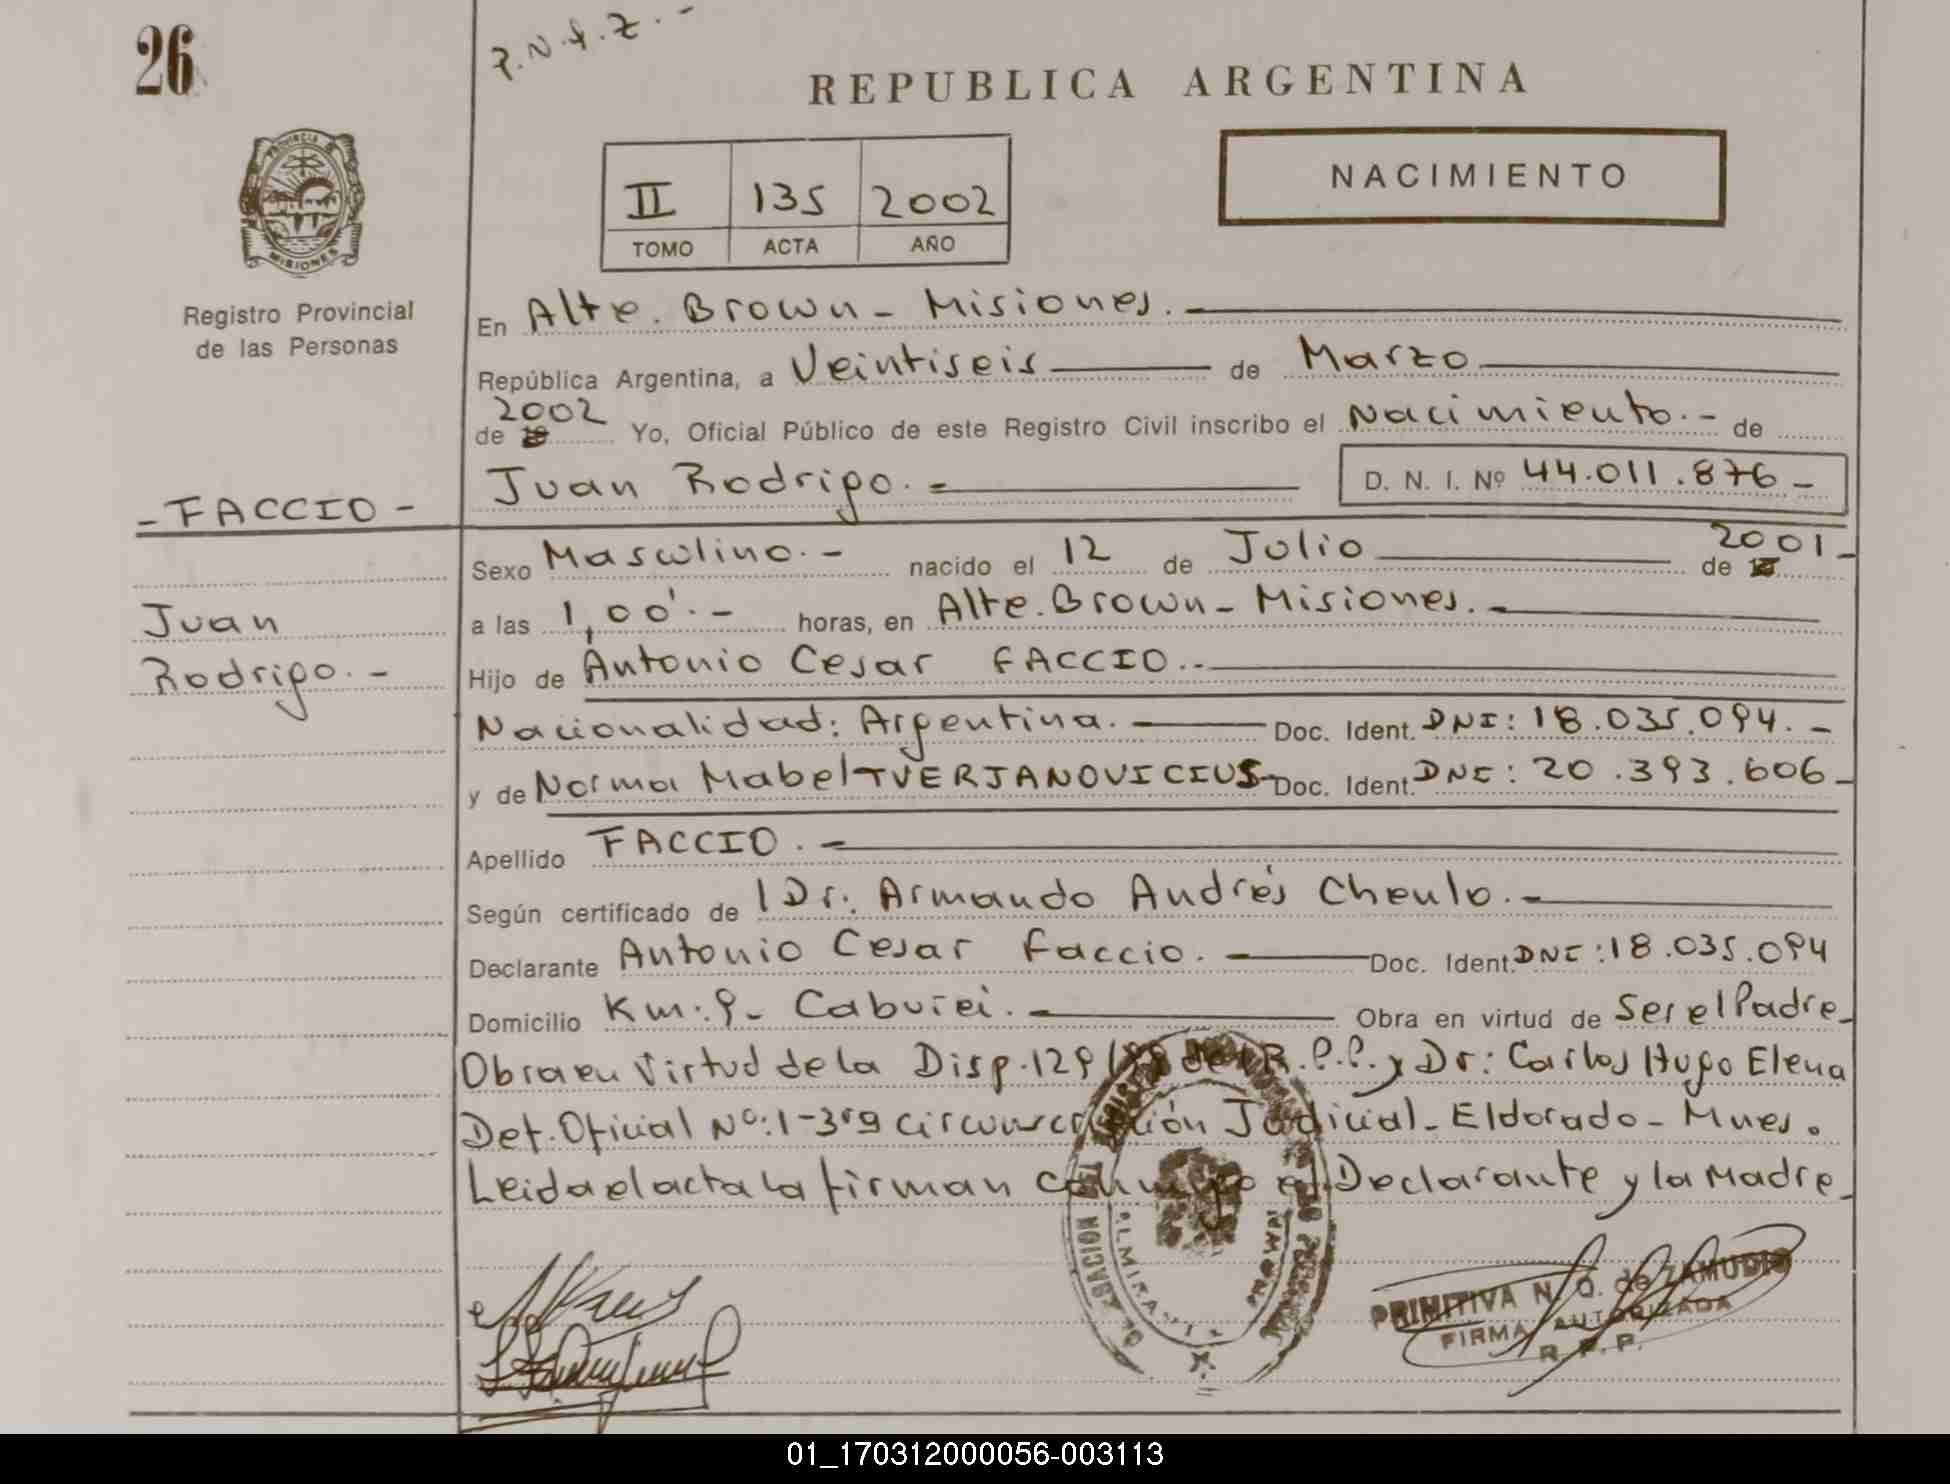 26
P.N.A.Z.-
REPUBLICA ARGENTINA
II 135 2002
TOMO ACTA AÑO
NACIMIENTO
PROVINCIA DE
MISIONES
Registro Provincial
de las Personas
En Alte. Brown - Misiones.
República Argentina, a Veintiseis de Marzo
de 19 2002 Yo, Oficial Público de este Registro Civil inscribo el Nacimiento.- de
Juan Rodrigo.- D. N. I. Nº 44.011.876-
- FACCIO -
Juan
Rodrigo.-
Sexo Masculino.- nacido el 12 de Julio de 2001-
a las 1,00'.- horas, en Alte. Brown - Misiones.-
Hijo de Antonio Cesar FACCIO..-
Nacionalidad: Argentina. Doc. Ident. DNI: 18.035.094.-
y de Norma Mabel TVERJANOVICIUS- Doc. Ident. DNI: 20.393.606-
Apellido FACCIO.-
Según certificado de l Dr. Armando Andrés Cheulo.-
Declarante Antonio Cesar Faccio. Doc. Ident. DNI: 18.035.094
Domicilio Km: 9- Caburei.- Obra en virtud de Ser el Padre-
Obra en Virtud de la Disp. 129/88 del R.P.P. y Dr: Carlos Hugo Elena
Def. Oficial Nº: 1-3ra circunscripción Judicial - Eldorado - Mnes.
Leida el acta la firman conmigo el Declarante y la Madre-
DELEGACION
ALMIRANTE
BROWN
PRIMITIVA N. O. de ZAMUDIO
FIRMA AUTORIZADA
R. P. P.
01_170312000056-003113